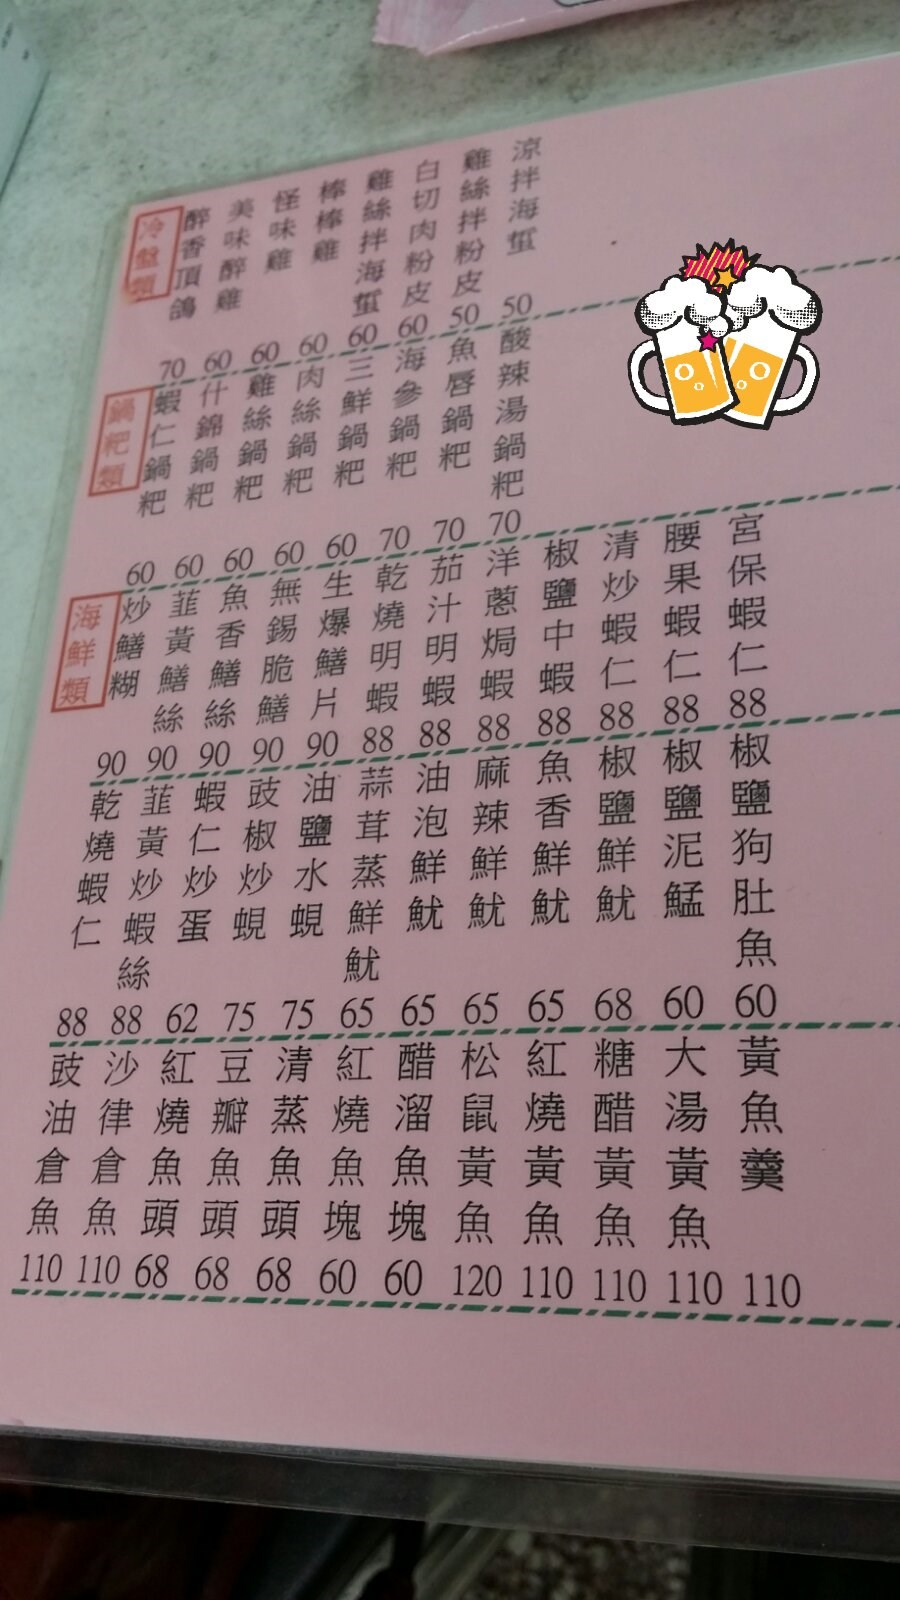 冷盤類
醉香頂鴿
70
美味醉雞
60
怪味雞
60
棒棒雞
60
雞絲拌海蜇
60
白切肉粉皮
60
雞絲拌粉皮
50
涼拌海蜇
50
鍋粑類
蝦仁鍋粑
60
什錦鍋粑
60
雞絲鍋粑
60
肉絲鍋粑
60
三鮮鍋粑
60
海參鍋粑
70
魚唇鍋粑
70
酸辣湯鍋粑
70
海鮮類
炒鱔糊
90
韮黃鱔絲
90
魚香鱔絲
90
無錫脆鱔
90
生爆鱔片
90
乾燒明蝦
88
茄汁明蝦
88
洋蔥焗蝦
88
椒鹽中蝦
88
清炒蝦仁
88
腰果蝦仁
88
宮保蝦仁
88
乾燒蝦仁
88
韮黃炒蝦絲
88
蝦仁炒蛋
62
豉椒炒蜆
75
油鹽水蜆
75
蒜茸蒸鮮魷
65
油泡鮮魷
65
麻辣鮮魷
65
魚香鮮魷
65
椒鹽鮮魷
68
椒鹽泥鯭
60
椒鹽狗肚魚
60
豉油倉魚
110
沙律倉魚
110
紅燒魚頭
68
豆瓣魚頭
68
清蒸魚頭
68
紅燒魚塊
60
醋溜魚塊
60
松鼠黃魚
120
紅燒黃魚
110
糖醋黃魚
110
大湯黃魚
110
黃魚羹
110